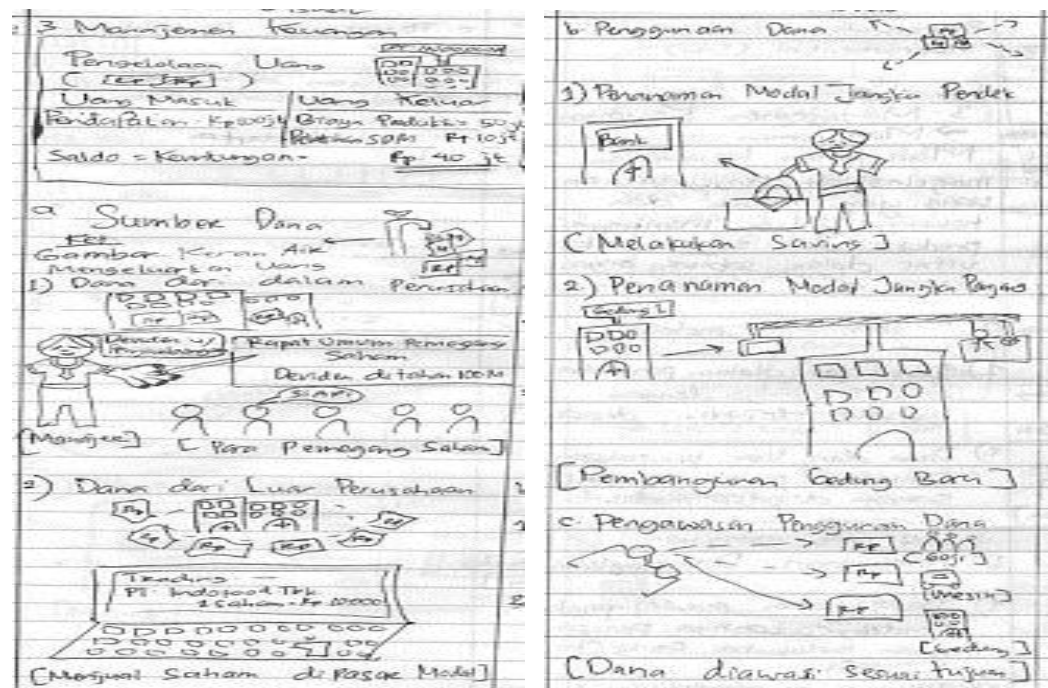 3. Manajemen Keuangan
Pengelolaan Uang
(Rp Rp)
Uang Masuk
Uang Keluar
Pendapatan = Rp 100 jt
Biaya Produksi = 50 jt
SDM Rp 10 jt
Saldo = Keuntungan = Rp 40 jt
a Sumber Dana
Gambar Keran Air
Mengeluarkan Uang
1) Dana dari dalam Perusahaan
Rapat Umum Pemegang
Saham
Deviden di tahan 100 M
[Manajer]
[Para Pemegang Saham]
2) Dana dari Luar Perusahaan
Rp
Rp
Rp
Trading
PT. Indofood Tbk
1 Saham = Rp 10000
[Menjual Saham di Pasar Modal]
b. Penggunaan Dana
1) Penanaman Modal Jangka Pendek
Bank
[Melakukan Saving]
2.) Penanaman Modal Jangka Panjang
Gedung 1
[Pembangunan Gedung Baru]
c. Pengawasan Penggunaan Dana
Rp
[Gaji]
Rp
[Mesin]
Rp
[Gedung]
[Dana diawasi sesuai tujuan]